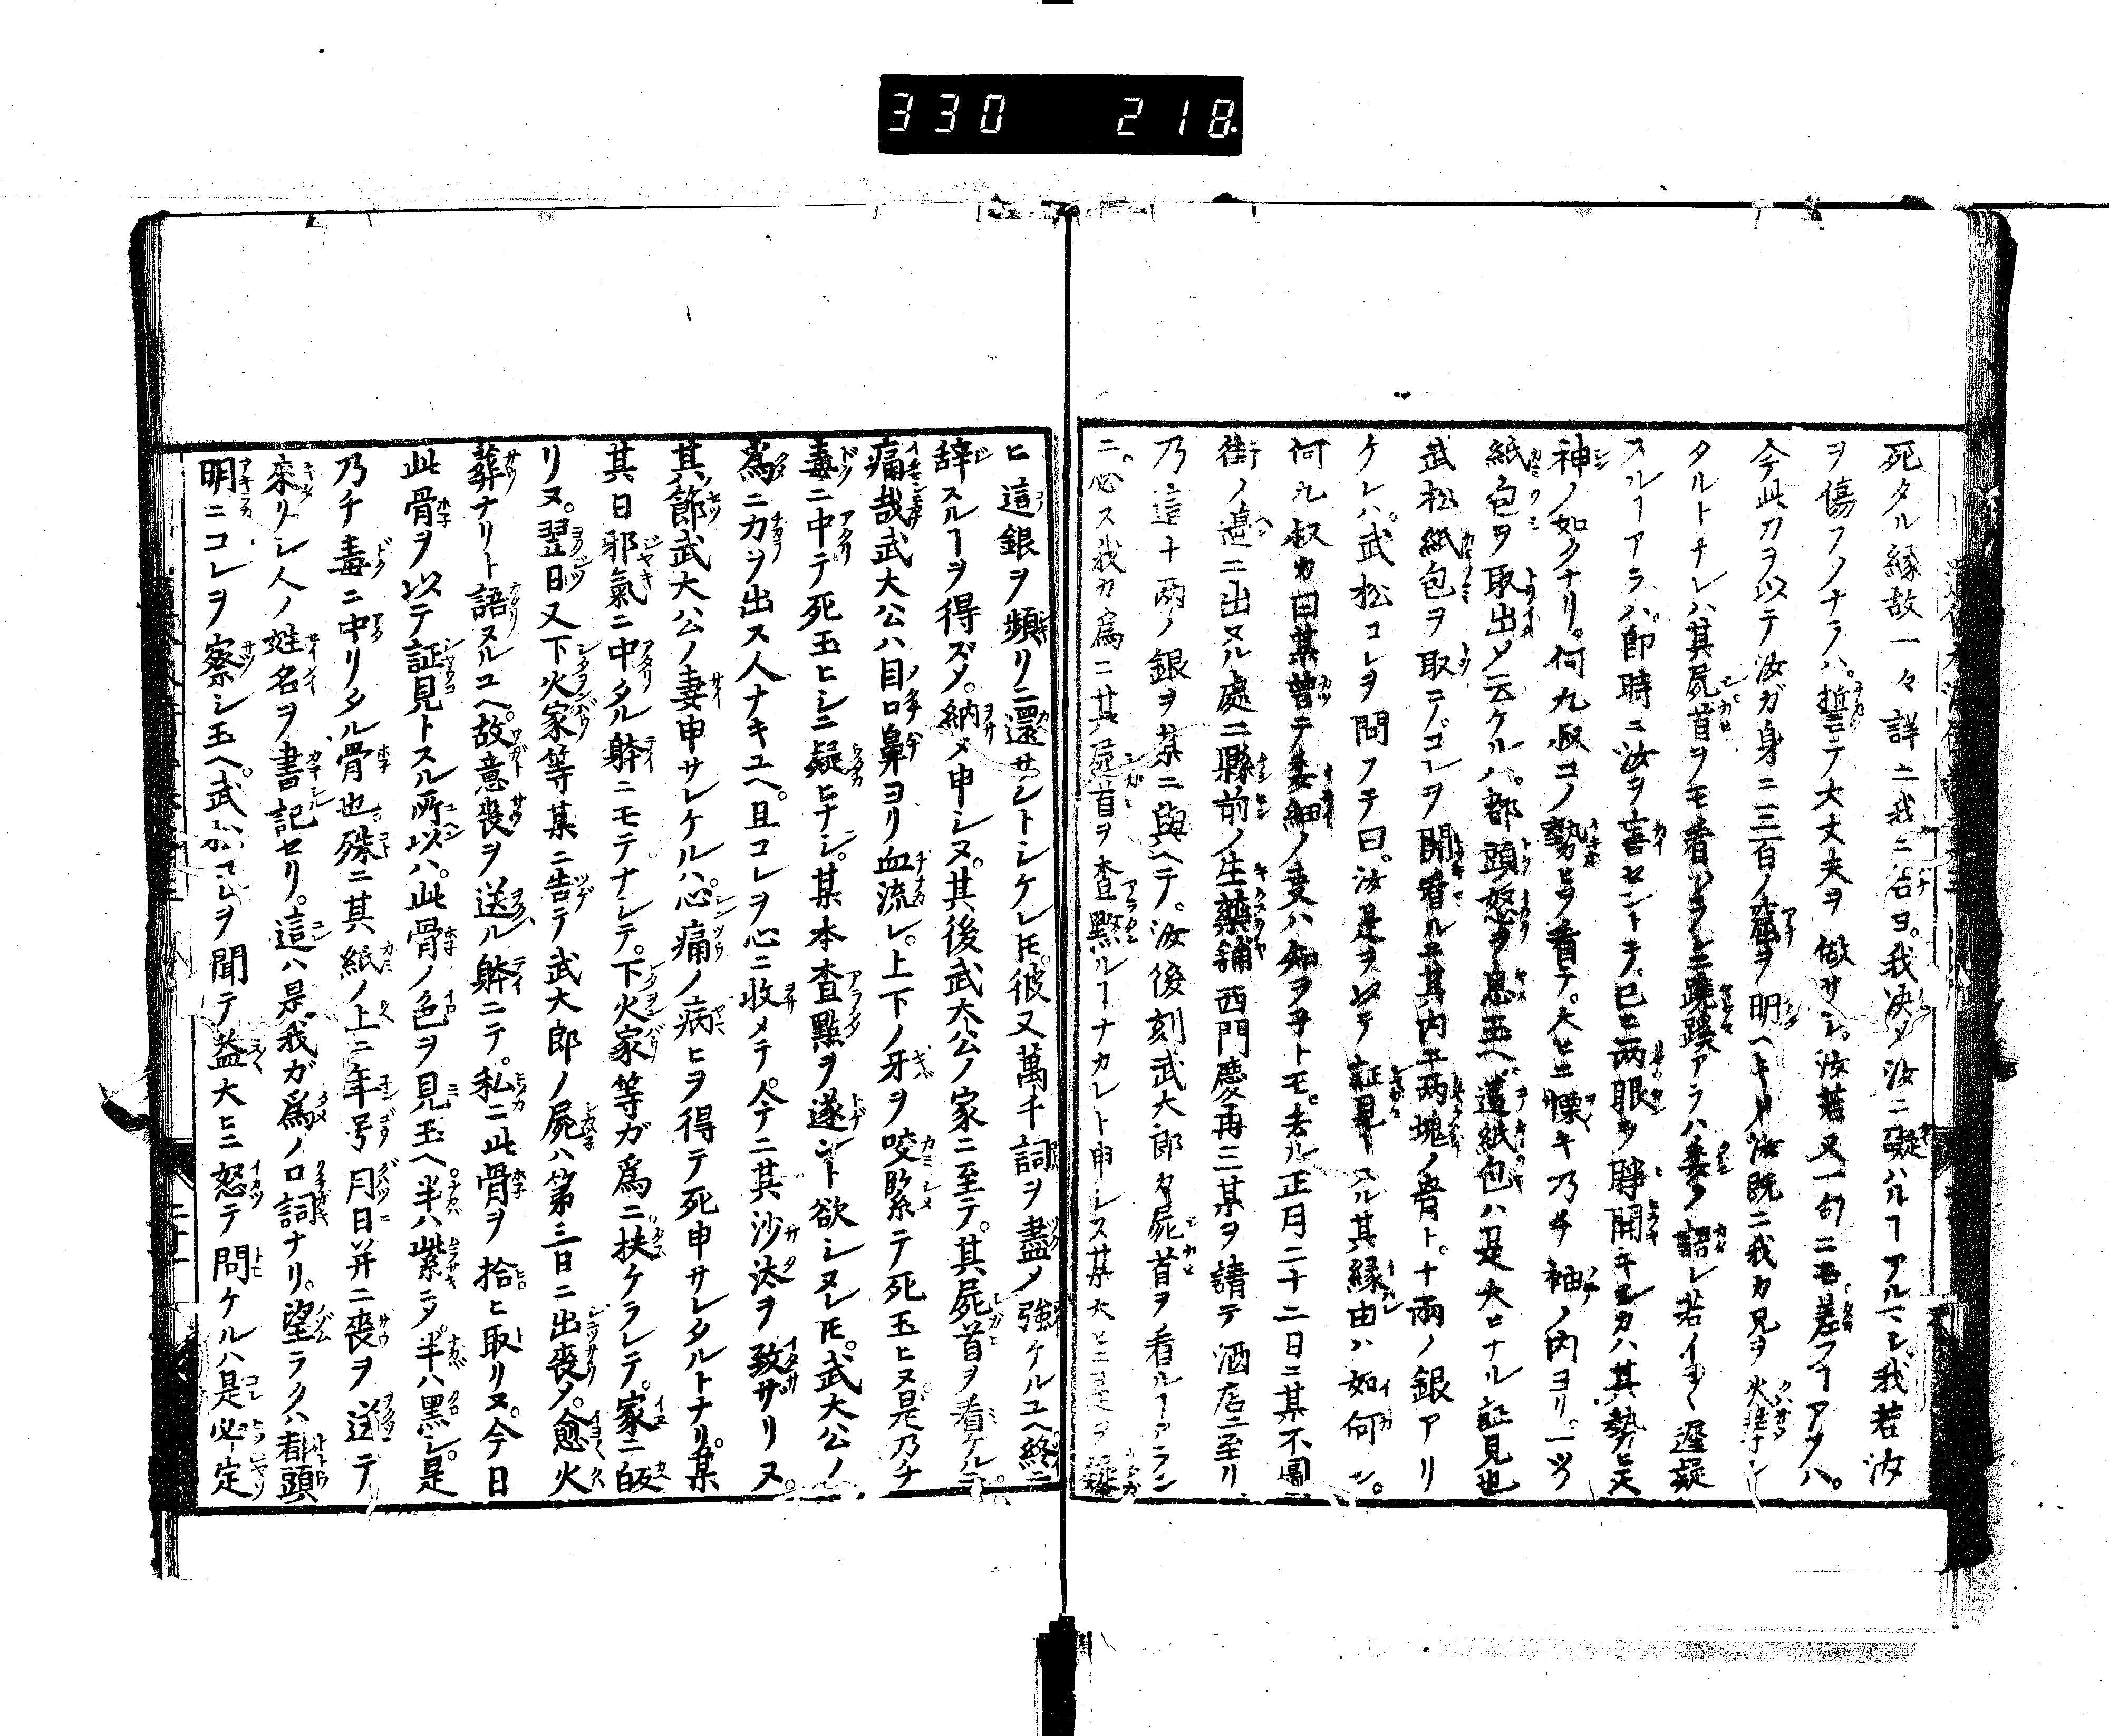 330 218.
死タル縁故一々詳ニ我ニ告ヨ。我决メ汝ニ礙ハルヿアルマシ。我若汝
ヲ傷フノナラハ。誓テ大丈夫ヲ做サシ。汝若又一句ニテモ差フヿアラハ。
今此刀ヲ以テ汝ガ身ニ三百ノ窟ヲ明ヘキソ汝既ニ我カ兄ヲ火葬シ
タルトナレハ其屍首ヲモ看ツラン ニ蹺蹊アラハ委ク語レ若イヨ〱遲疑
スルヿアラハ。即時ニ汝ヲ害セントテ。已ニ両眼ヲ睜開キシカハ其勢ヒ天
神ノ如クナリ。何九叔コノ勢ヒヲ看テ。大ヒニ慄キ乃チ袖ノ内ヨリ。一ツ
紙包ヲ取出メ云ケルハ。都頭怒ヲ息玉ヘ。這紙包ハ是大ヒナル証見也
武松紙包ヲ取テコレヲ開看ルニ其内ニ両塊ノ骨ト。十兩ノ銀アリ
ケレハ。武松コレヲ問フテ曰。汝是ヲ以テ証見トスル其縁由ハ如何ン。
何九叔カ曰某曾テ委細ノ叓ハ知ラヲトモ。去ル正月二十二日ニ某不圖
街ノ邉ニ出ヌル處ニ縣前ノ生藥舗西門慶再三某ヲ請テ酒店ニ至リ
乃這十兩ノ銀ヲ某ニ與ヘテ。汝後刻武大郎カ屍首ヲ看ルヿアラン
ニ。必ス我カ爲ニ其屍首ヲ査㸃ルヿナカレト申シヌ某大ヒニ是ヲ疑
ヒ這銀ヲ頻リニ還サントシケレ𪜈。彼又萬千詞ヲ盡メ強ケルユヘ終ニ
辞スルヿヲ得ズメ。納メ申シヌ。其後武大公ノ家ニ至テ。其屍首ヲ看ケルニ。
痛哉武大公ハ目口鼻ヨリ血流レ。上下ノ牙ヲ咬緊テ死玉ヒヌ是乃チ
毒ニ中テ死玉ヒシニ疑ヒナシ。某本査㸃ヲ遂ント欲シヌレ𪜈。武大公ノ
爲ニカヲ出ス人ナキユヘ。且コレヲ心ニ收メテ今ニ其沙汰ヲ致ザリヌ。
其節武大公ノ妻申サレケルハ。心痛ノ病ヒヲ得テ死申サレタルトナリ。某
其日邪氣ニ中タル躰ニモテナシテ。下火家等ガ爲ニ扶ケラレテ。家ニ皈
リヌ。翌日又下火家等某ニ告テ武大郎ノ屍ハ第三日ニ出喪メ。愈火
葬ナリト語ヌルユヘ。故意喪ヲ送ル躰ニテ。私ニ此骨ヲ拾ヒ取リヌ。今日
此骨ヲ以テ証見トスル所以ハ。此骨ノ色ヲ見玉ヘ半ハ紫ニメ半ハ黑シ。是
乃チ毒ニ中リタル骨也。殊ニ其紙ノ上ニ年号月日并ニ喪ヲ送テ
來リシ人ノ姓名ヲ書記セリ。這ハ是我ガ爲ノ口詞ナリ。望ラクハ都頭
明ニコレヲ察シ玉ヘ。武松コレヲ聞テ益大ヒニ怒テ問ケルハ是必定